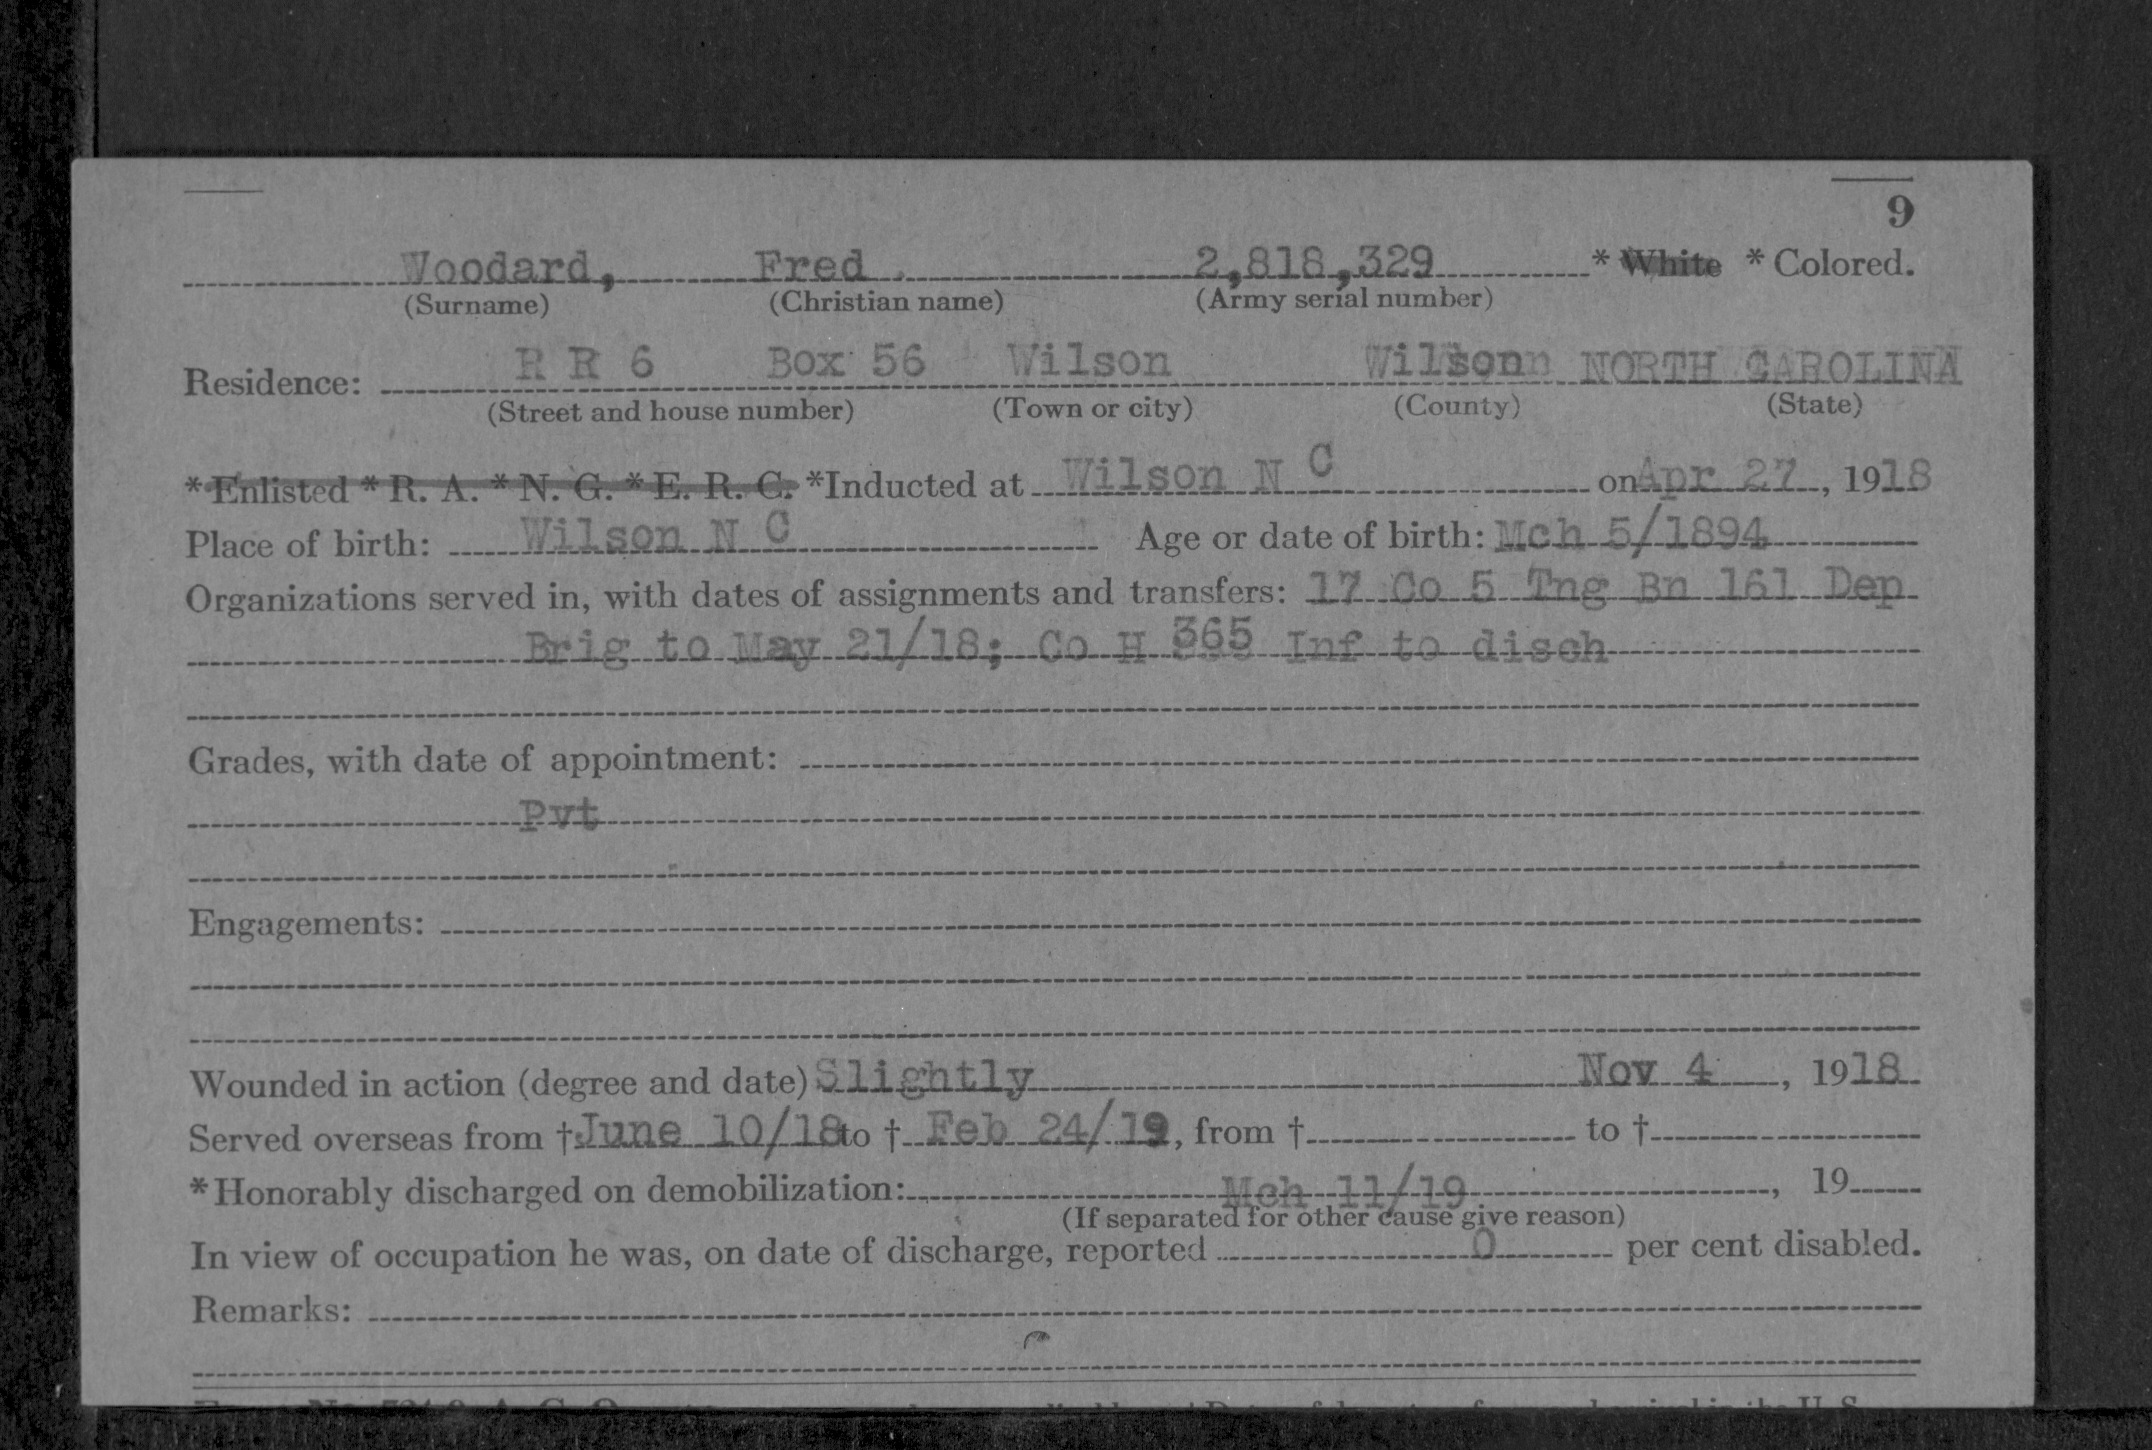 9
Woodard, Fred 2,818,329 * White * Colored.
(Surname) (Christian name) (Army serial number)
Residence: R R 6 Box 56 Wilson Wilson NORTH CAROLINA
(Street and house number) (Town or city) (County) (State)
*Enlisted *R. A. *N. G. *E. R. C. *Inducted at Wilson N C on Apr 27, 1918
Place of birth: Wilson N C Age or date of birth: Mch 5/1894
Organizations served in, with dates of assignments and transfers: 17 Co 5 Tng Bn 161 Dep
Brig to May 21/18; Co H 365 Inf to disch
Grades, with date of appointment:
Pvt
Engagements:
Wounded in action (degree and date) Slightly Nov 4, 1918
Served overseas from † June 10/18 to † Feb 24/19, from † to †
*Honorably discharged on demobilization: Mch 11/19, 19
(If separated for other cause give reason)
In view of occupation he was, on date of discharge, reported 0 per cent disabled.
Remarks: